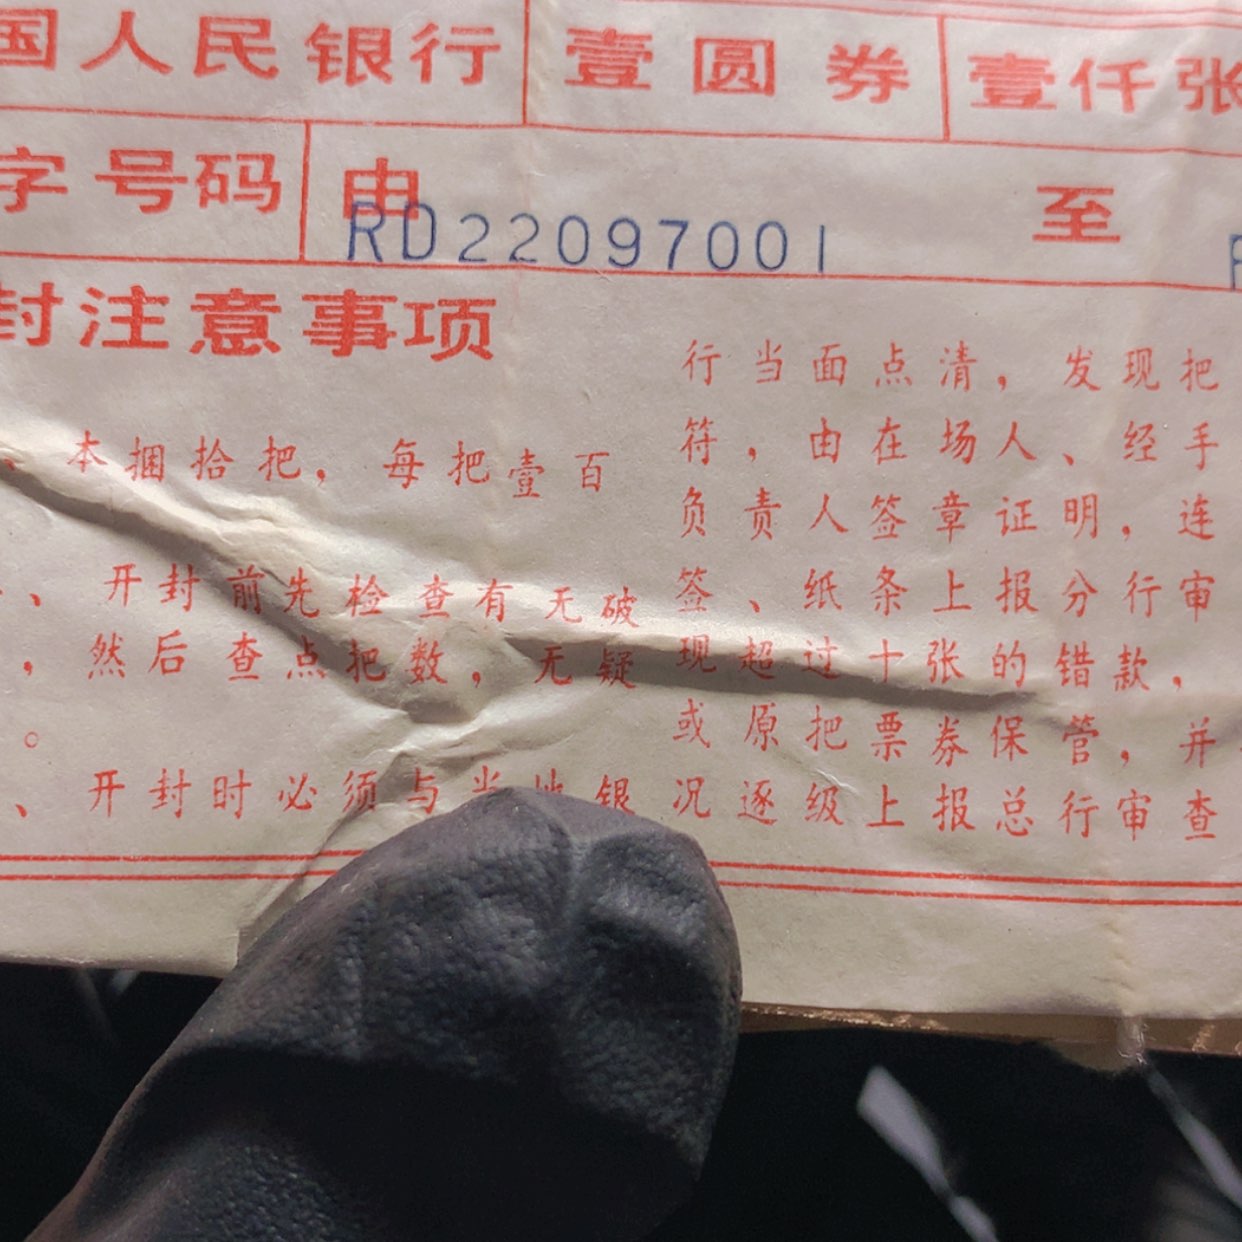 国人民银行 壹圆券 壹仟张
字号码 由 RD22097001 至
封注意事项
、本捆拾把，每把壹百
、开封前先检查有无破
，然后查点把数，无疑
。
、开封时必须与当地银
行当面点清，发现把
符，由在场人、经手
负责人签章证明，连
签、纸条上报分行审
现超过十张的错款，
或原把票券保管，并
况逐级上报总行审查